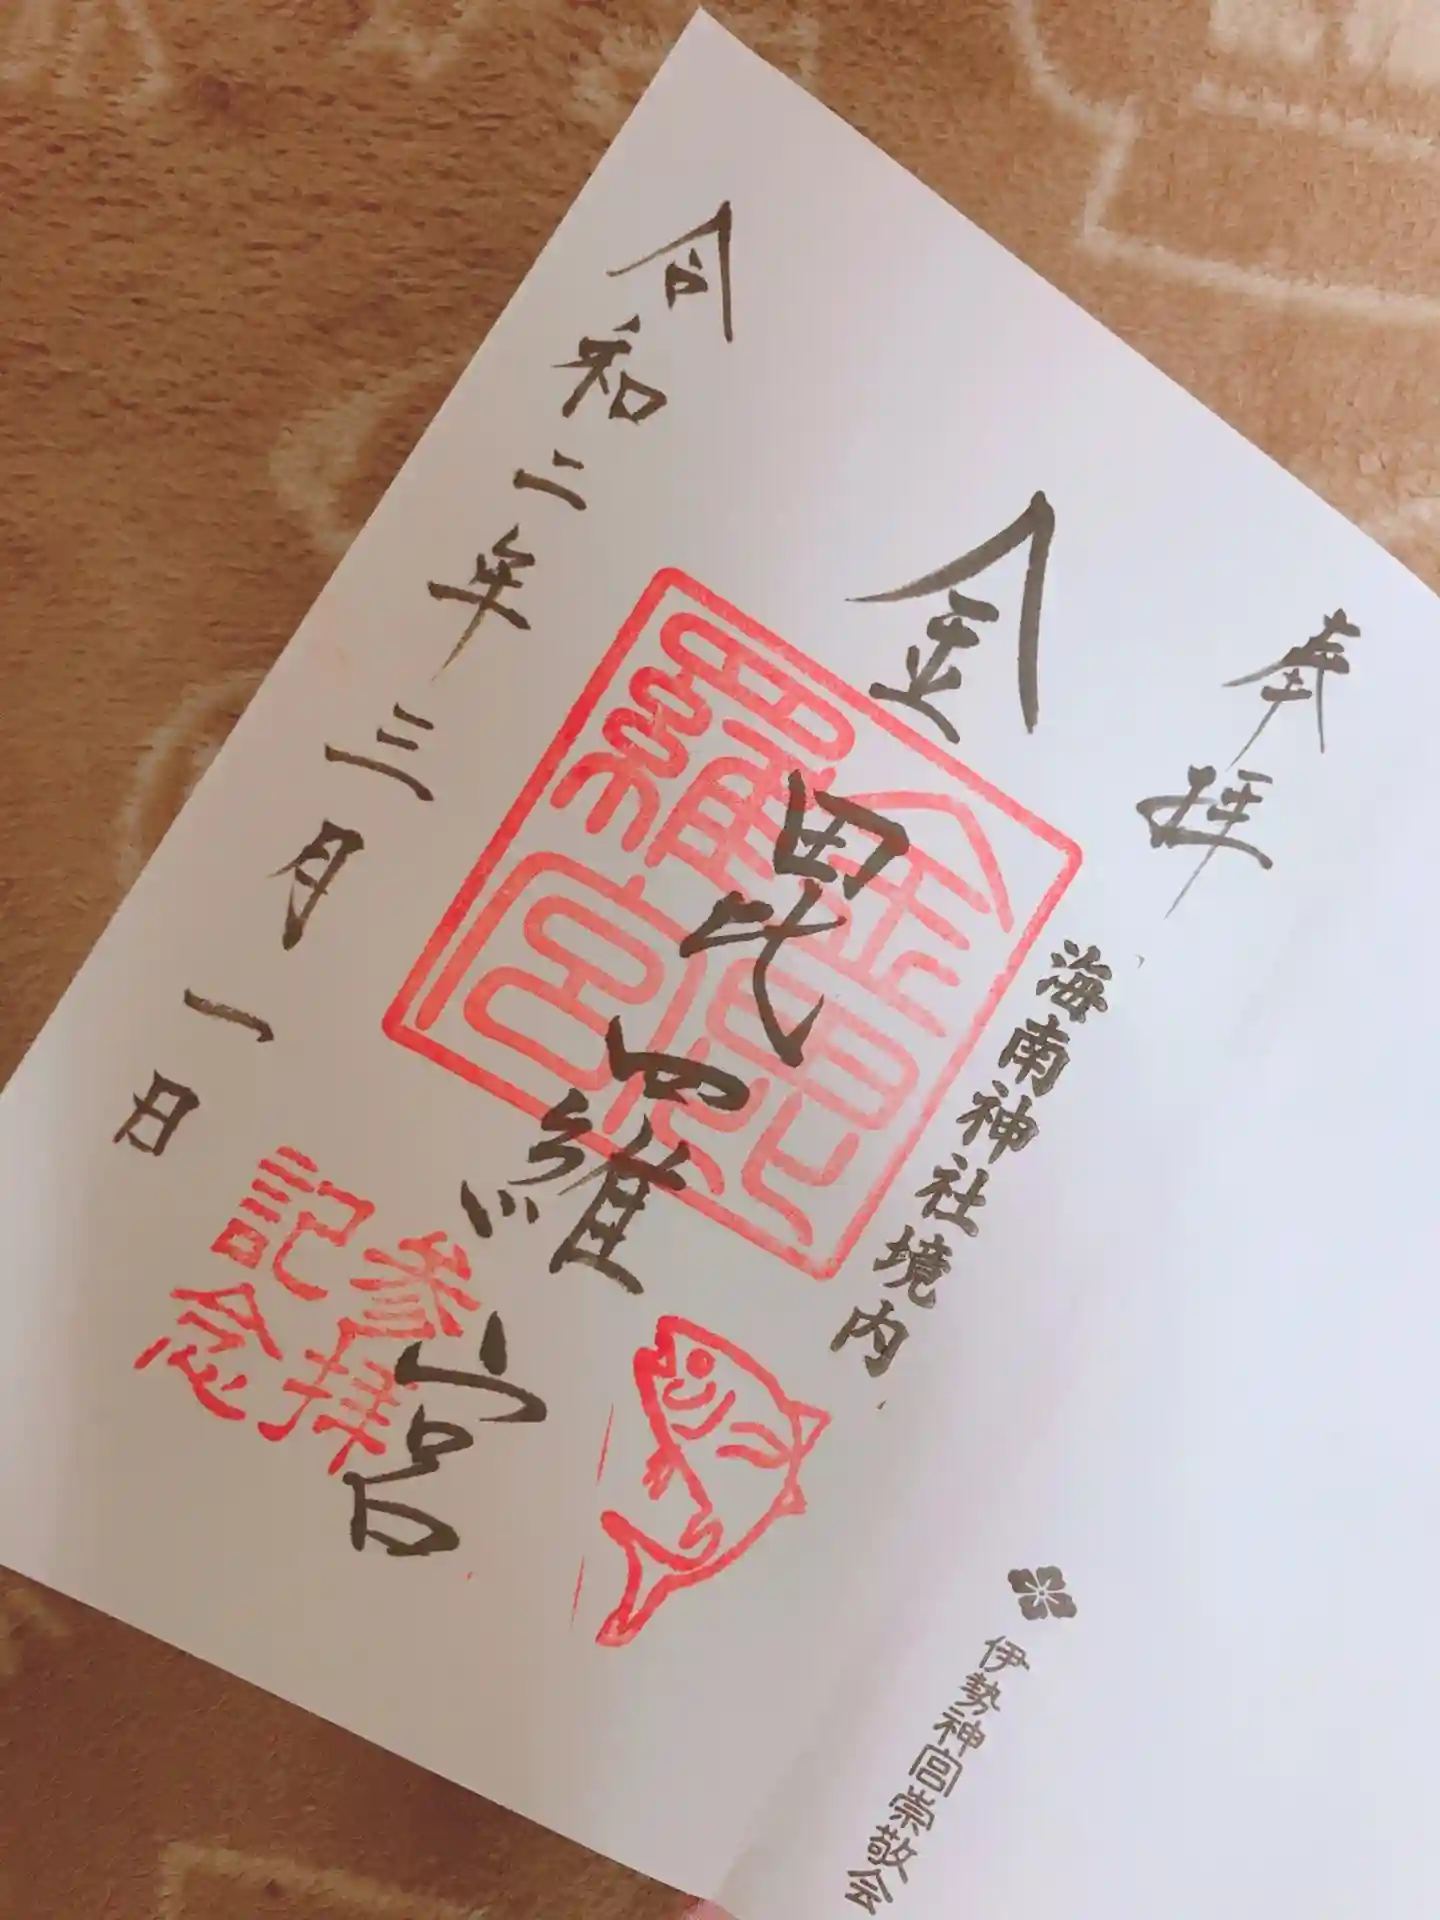 奉拝
海南神社境内
金毘羅宮
金毘羅宮
参拝記念
令和二年三月一日
伊勢神宮崇敬会